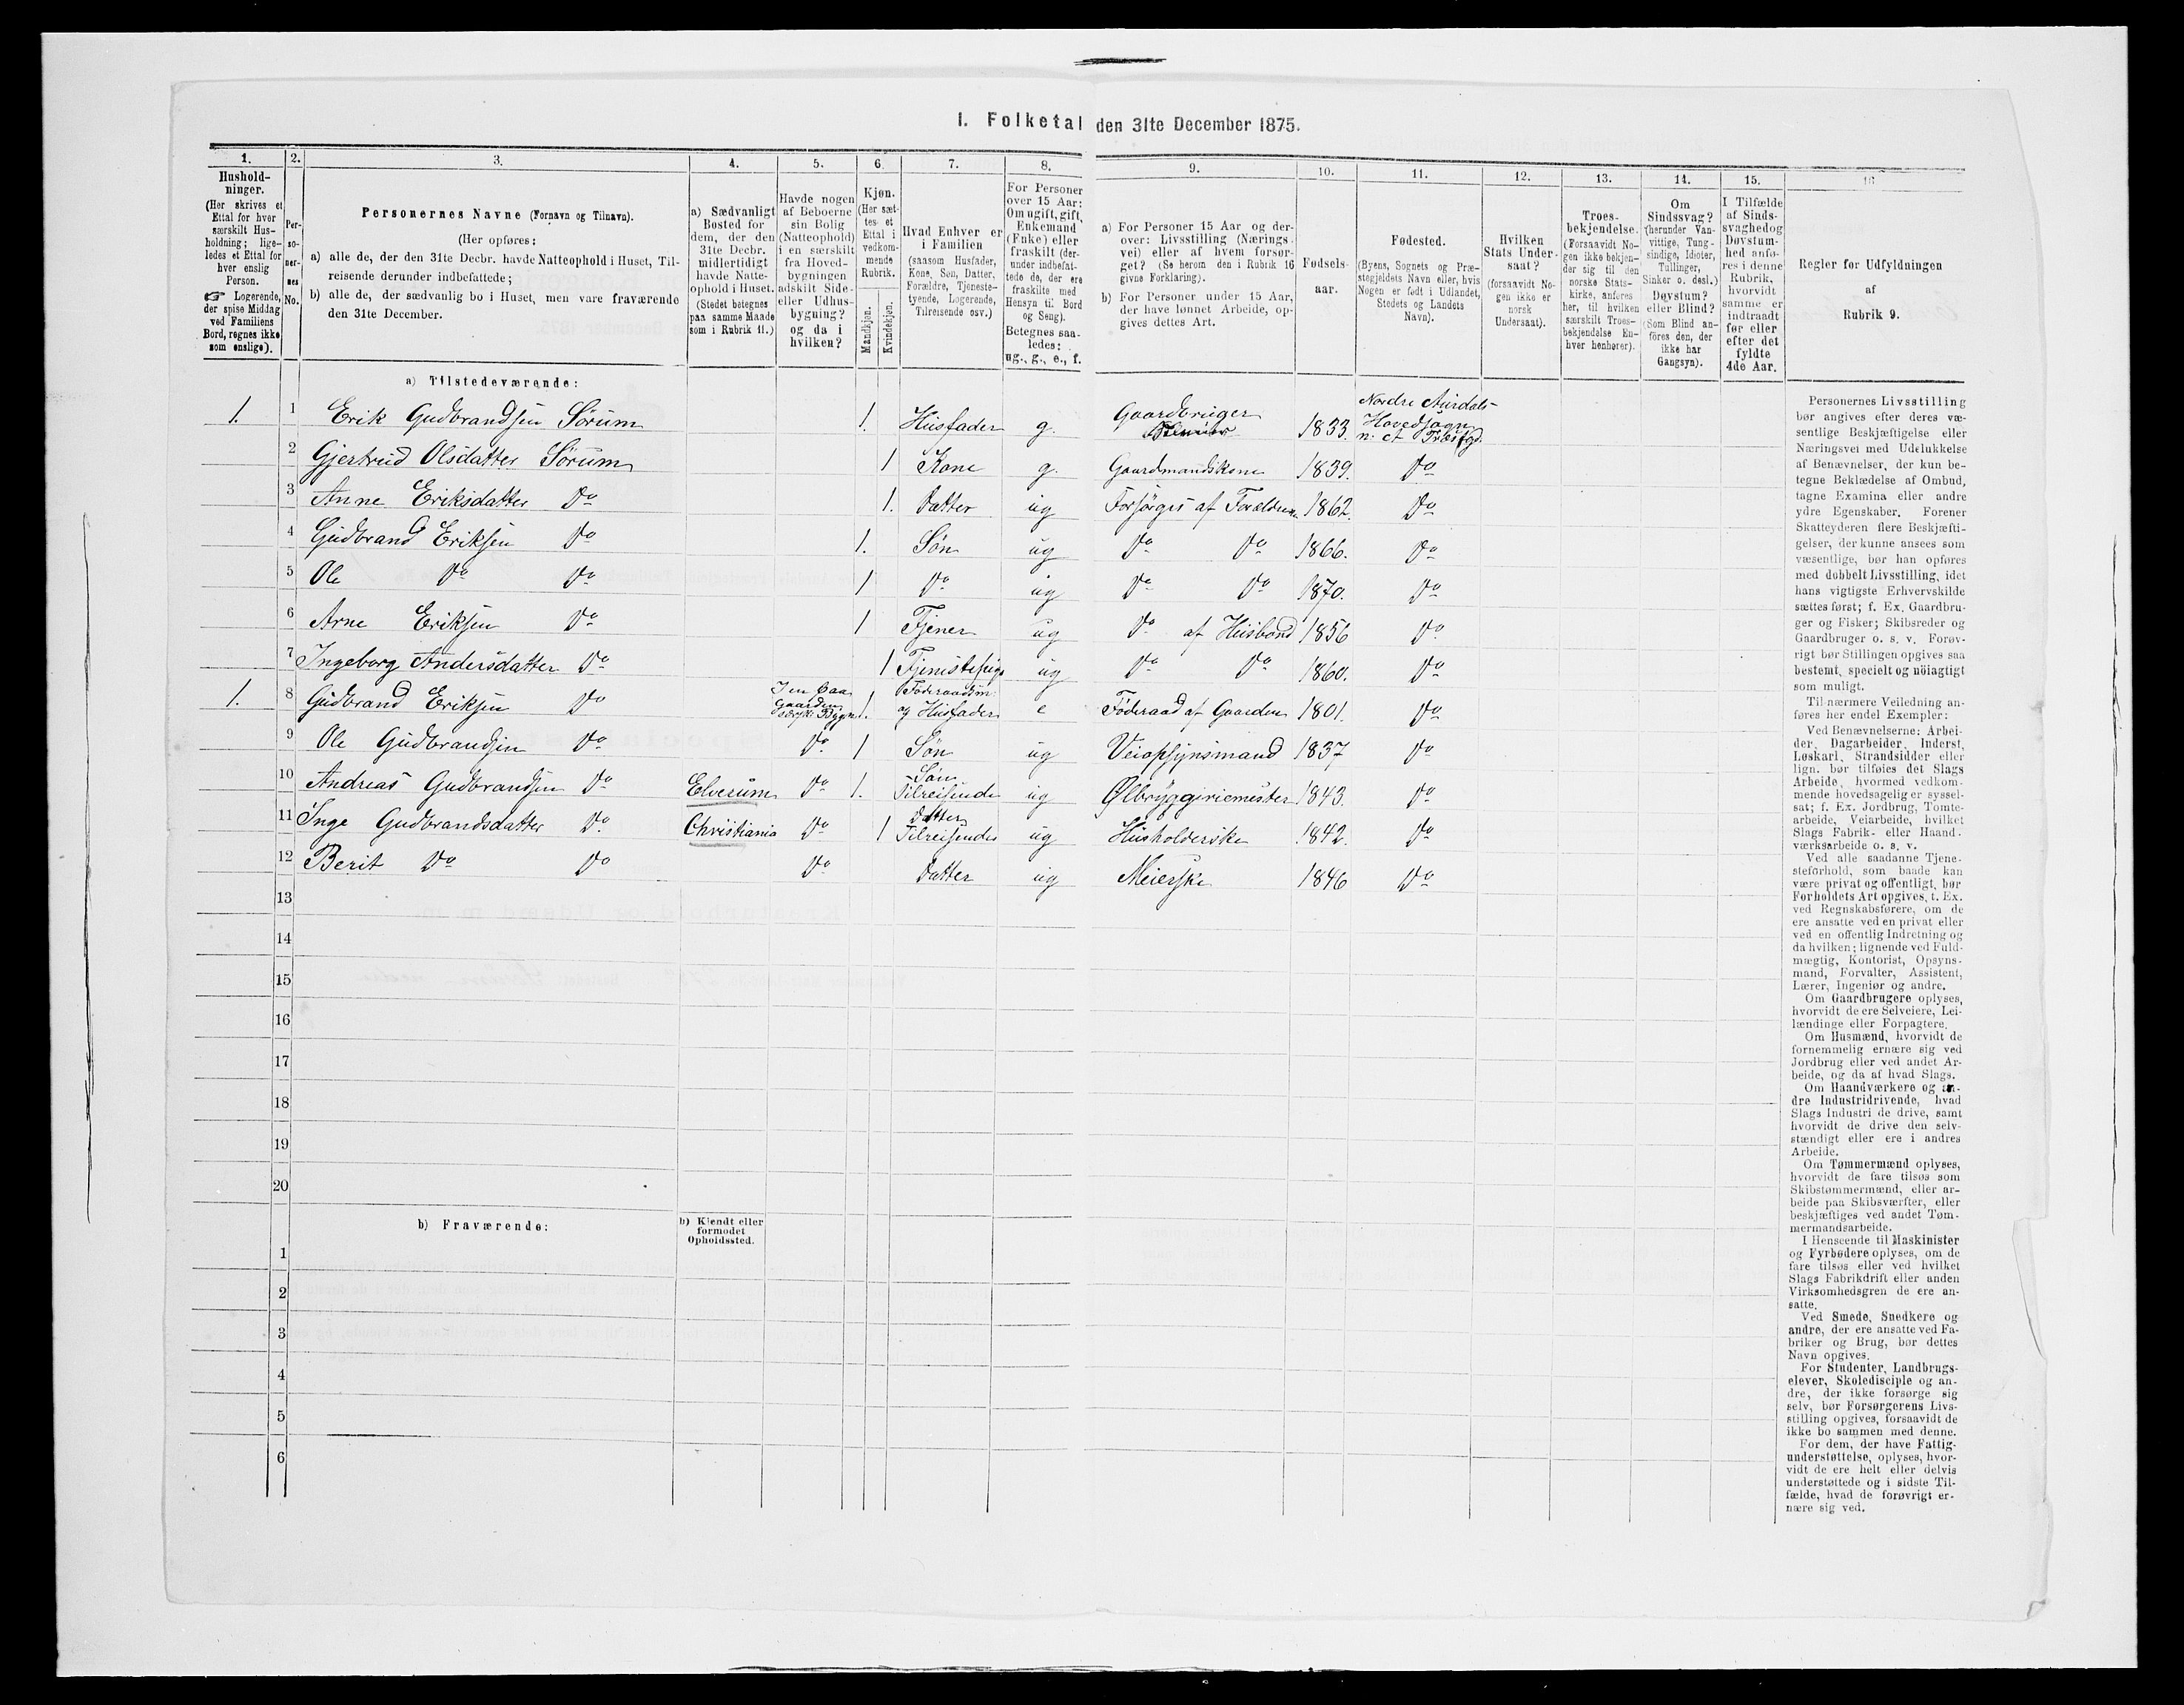 I. Folketal den 31te December 1875.
1. 2. 3. 4. 5. 6. 7. 8. 9. 10. 11. 12. 13. 14. 15. 16
Hushold-
ninger.
(Her skrives et
Ettal for hver
særskilt Hus-
holdning; lige-
ledes et Ettal for
hver enslig
Person.
☞ Logerende,
der spise Middag
ved Familiens
Bord, regnes ikke
som enslige).
Per-
so-
ner-
nes
No.
Personernes Navne (Fornavn og Tilnavn).
(Her opføres:
a) alle de, der den 31te Decbr. havde Natteophold i Huset, Til-
reisende derunder indbefattede;
b) alle de, der sædvanlig bo i Huset, men vare fraværende
den 31te December.
a) Sædvanligt
Bosted for
dem, der den
31te Decbr.
midlertidigt
havde Natte-
ophold i Huset.
(Stedet betegnes
paa samme Maade
som i Rubrik 11.)
Havde nogen
af Beboerne
sin Bolig
(Natteophold)
i en særskilt
fra Hoved-
bygningen
adskilt Side-
eller Udhus-
bygning?
og da i
hvilken?
Kjøn.
(Her sæt-
tes et
Ettal i
vedkom-
mende
Rubrik.
Mandkjøn.
Kvindekjøn.
Hvad Enhver er
i Familien
(saasom Husfader,
Kone, Søn, Datter,
Forældre, Tjeneste-
tyende, Logerende,
Tilreisende osv.)
For Personer
over 15 Aar:
Om ugift, gift,
Enkemand
(Enke) eller
fraskilt (der-
under indbefat-
tede de, der ere
fraskilte med
Hensyn til Bord
og Seng).
Betegnes saa-
ledes:
ug., g., e., f.
a) For Personer 15 Aar og der-
over: Livsstilling (Nærings-
vei) eller af hvem forsør-
get? (Se herom den i Rubrik 16
givne Forklaring).
b) For Personer under 15 Aar,
der have lønnet Arbeide, op-
gives dettes Art.
Fødsels-
aar.
Fødested.
(Byens, Sognets og Præ-
stegjeldets Navn eller, hvis
Nogen er født i Udlandet,
Stedets og Landets
Navn).
Hvilken
Stats Under-
saat?
(forsaavidt No-
gen ikke er
norsk
Undersaat).
Troes-
bekjendelse.
(Forsaavidt No-
gen ikke bekjen-
der sig til den
norske Stats-
kirke, anføres
her, til hvilken
særskilt Troes-
bekjendelse En-
hver henhører).
Om
Sindssvag?
(herunder Van-
vittige, Tung-
sindige, Idioter,
Tullinger,
Sinker o. desl.)
Døvstum?
eller Blind?
(Som Blind an-
føres den, der
ikke har
Gangsyn).
I Tilfælde
af Sinds-
svaghed og
Døvstum-
hed anfø-
res i denne
Rubrik,
hvorvidt
samme er
indtraadt
før eller
efter det
fyldte
4de Aar.
Regler for Udfyldningen
af
Rubrik 9.
a) Tilstedeværende:
1. 1 Erik Gudbrandsen Sørum 1. Husfader g. Gaardbruger 1833. Nordre Aurdals Hovedsogn n. A. Præstgd.
2 Gjertrud Olsdatter Sørum 1 Kone g. Gaardmandskone 1839. Do
3 Anne Eriksdatter Do 1. Datter ug Forsørges af Forældrene 1862. Do
4 Gudbrand Eriksen Do 1. Søn ug Do Do 1866. Do
5 Ole Do Do 1 Do ug Do Do 1870. Do
6 Arne Eriksen Do 1 Tjener ug Do af Husbond 1856 Do
7 Ingeborg Andersdatter Do 1 Tjenestepige ug Do Do 1860. Do
1. 8 Gudbrand Eriksen Do I en paa Gaarden særsk. Bygn. 1. Føderaadsm. og Husfader e Føderaad af Gaarden 1801. Do
9 Ole Gudbrandsen Do Do 1 Søn ug Veiopsynsmand 1837 Do
10 Andreas Gudbrandsen Do Elverum Do 1. Søn Tilreisende ug Ølbryggeriemester 1843. Do
11 Inge Gudbrandsdatter Do Christiania Do 1 Datter Tilreisende ug Husholderske 1842. Do
12 Berit Do Do Do Datter ug Meierske 1846 Do
13
14
15
16
17
18
19
20
b) Fraværende:
b) Kjendt eller
formodet
Opholdssted.
1
2
3
4
5
6
Personernes Livsstilling
bør angives efter deres væ-
sentlige Beskjæftigelse eller
Næringsvei med Udelukkelse
af Benævnelser, der kun be-
tegne Beklædelse af Ombud,
tagne Examina eller andre
ydre Egenskaber. Forener
Skatteyderen flere Beskjæfti-
gelser, der kunne ansees som
væsentlige, bør han opføres
med dobbelt Livsstilling, idet
hans vigtigste Erhvervskilde
sættes først; f. Ex. Gaardbru-
ger og Fisker; Skibsreder og
Gaardbruger o. s. v. Forøv-
rigt bør Stillingen opgives saa
bestemt, specielt og nöiagtigt
som muligt.
Til nærmere Veiledning an-
føres her endel Exempler:
Ved Benævnelserne: Arbei-
der, Dagarbeider, Inderst,
Løskarl, Strandsidder eller
lign. bør tilføies det Slags
Arbeide, hvormed vedkom-
mende hovedsagelig er syssel-
sat; f. Ex. Jordbrug, Tomte-
arbeide, Veiarbeide, hvilket
Slags Fabrik- eller Haand-
værksarbeide o. s. v.
Ved alle saadanne Tjene-
steforhold, som baade kan
være privat og offentligt, bør
Forholdets Art opgives, t. Ex.
ved Regnskabsførere, om de
ere ansatte ved en privat eller
ved en offentlig Indretning og
da hvilken; lignende ved Fuld-
mægtig, Kontorist, Opsyns-
mand, Forvalter, Assistent,
Lærer, Ingeniør og andre.
Om Gaardbrugere oplyses,
hvorvidt de ere Selveiere, Lei-
lændinge eller Forpagtere.
Om Husmænd, hvorvidt de
fornemmelig ernære sig ved
Jordbrug eller ved andet Ar-
beide, og da af hvad Slags.
Om Haandværkere og an-
dre Industridrivende, hvad
Slags Industri de drive, samt
hvorvidt de drive den selv-
stændigt eller ere i andres
Arbeide.
Om Tømmermænd oplyses,
hvorvidt de fare tilsøs som
Skibstømmermænd, eller ar-
beide paa Skibsværfter, eller
beskjæftiges ved andet Tøm-
mermandsarbeide.
I Henseende til Maskinister
og Fyrbødere oplyses, om de
fare tilsøs eller ved hvilket
Slags Fabrikdrift eller anden
Virksomhedsgren de ere an-
satte.
Ved Smede, Snedkere og
andre, der ere ansatte ved Fa-
briker og Brug, bør dettes
Navn opgives.
For Studenter, Landbrugs-
elever, Skoledisciple og an-
dre, der ikke forsørge sig
selv, bør Forsørgerens Livs-
stilling opgives, forsaavidt de
ikke bo sammen med denne.
For dem, der have Fattig-
understøttelse, oplyses, hvor-
vidt de ere helt eller delvis
understøttede og i sidste Til-
fælde, hvad de forøvrigt er-
nære sig ved.